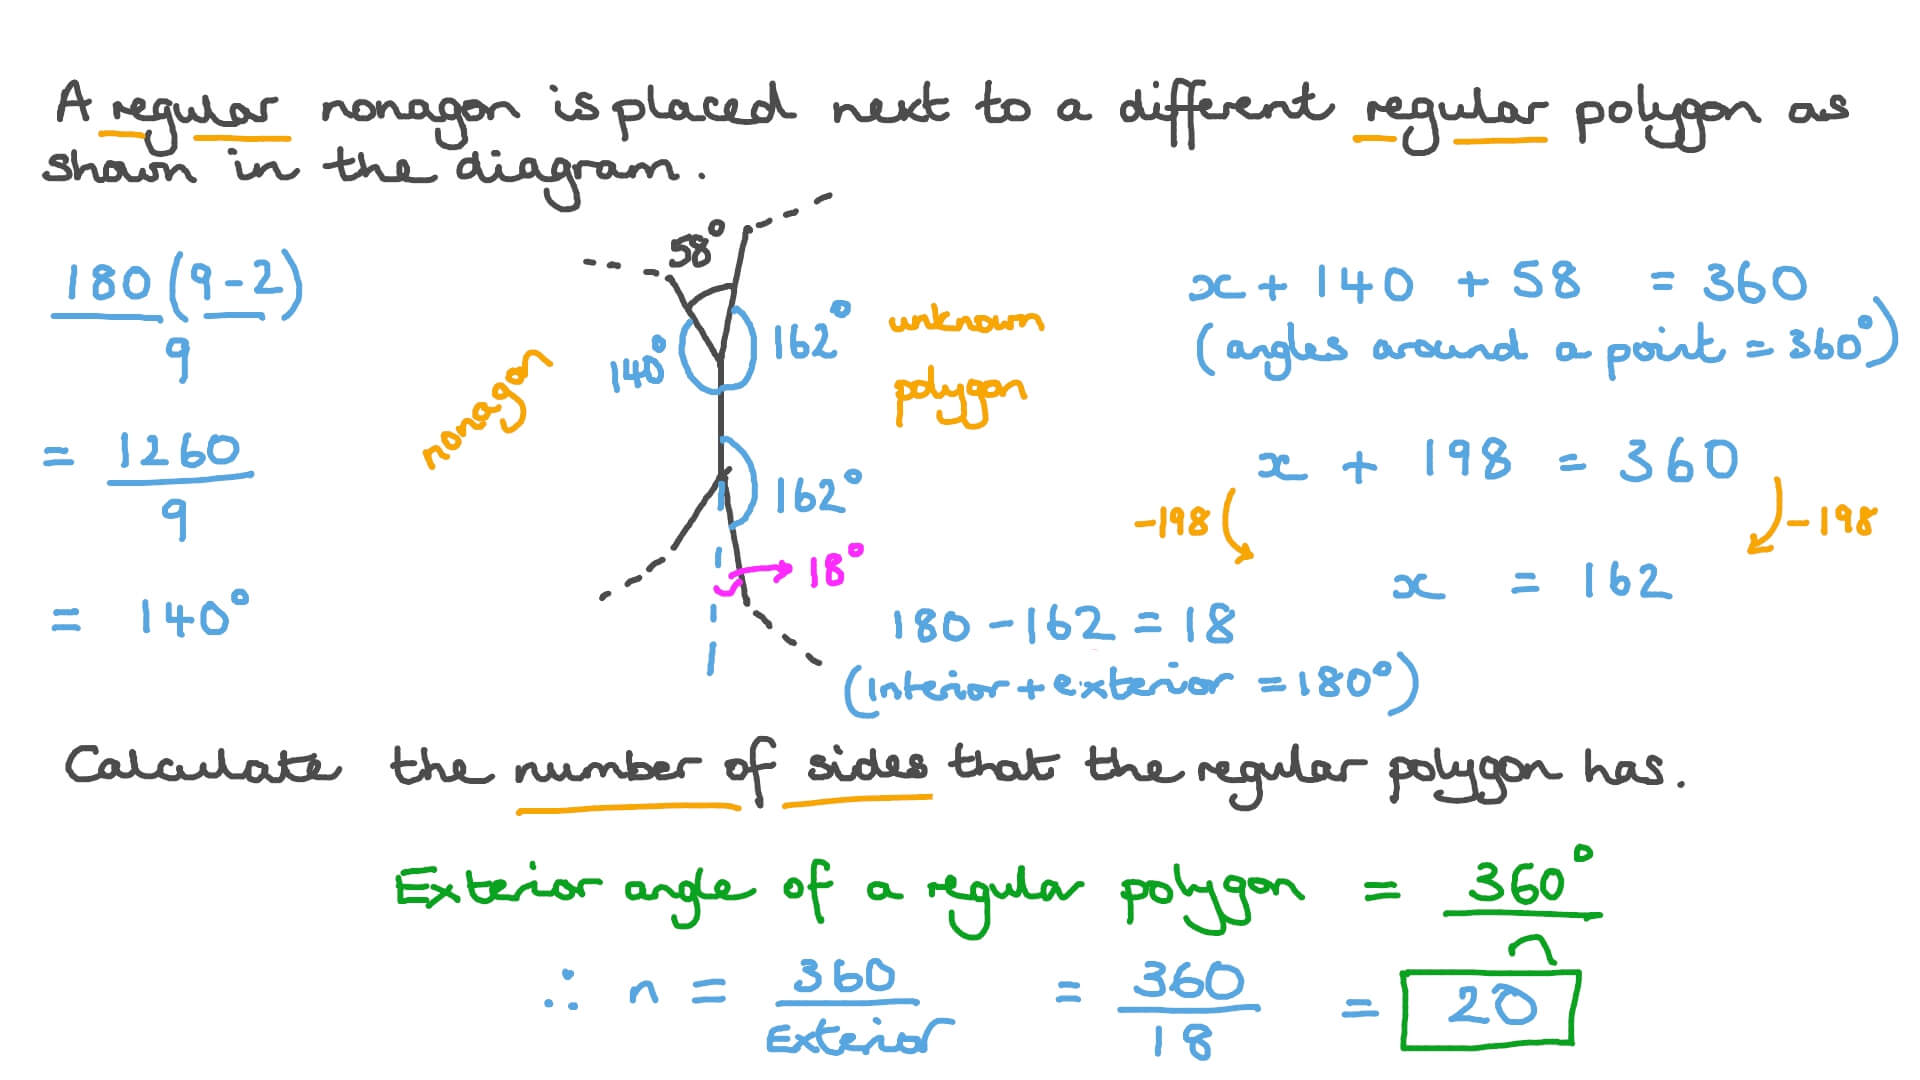 A regular nonagon is placed next to a different regular polygon as
shown in the diagram.
180(9-2)
9
= 1260
9
= 140°
nonagon
58°
140°
162°
162°
18°
unknown
polygon
x + 140 + 58 = 360
(angles around a point = 360°)
x + 198 = 360
-198
-198
x = 162
180 - 162 = 18
(interior + exterior = 180°)
Calculate the number of sides that the regular polygon has.
Exterior angle of a regular polygon = 360°
n
∴ n = 360 = 360 = 20
Exterior 18